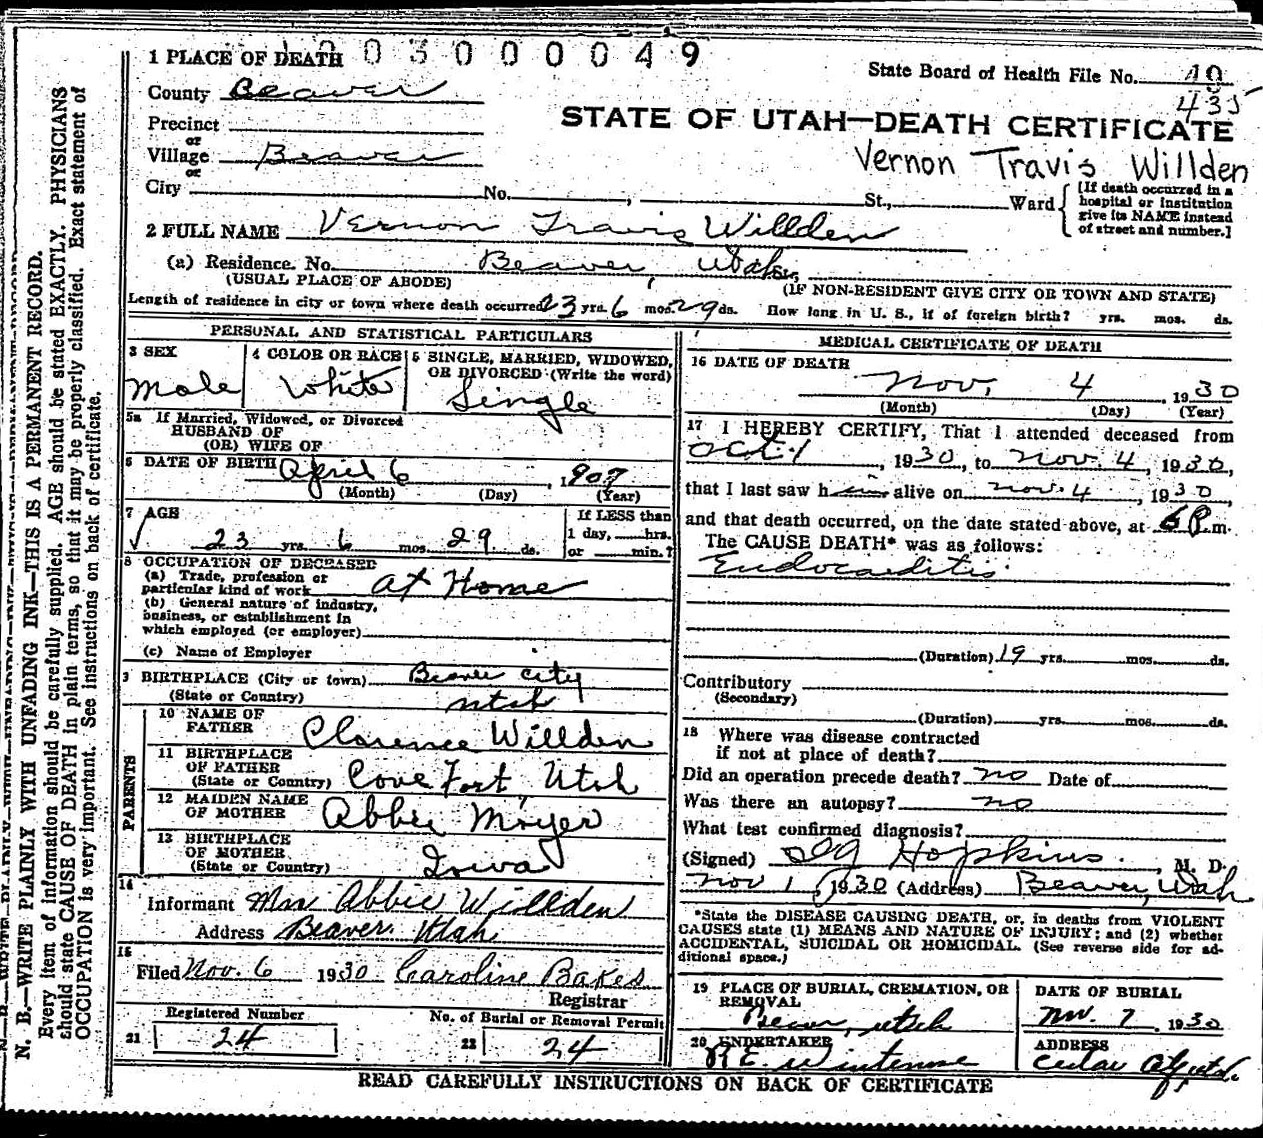 1003000049
1 PLACE OF DEATH
State Board of Health File No. 49
435
County Beaver
STATE OF UTAH—DEATH CERTIFICATE
Precinct
or
Village Beaver
or
Vernon Travis Willden
City No. , St., Ward
[If death occurred in a
hospital or institution
give its NAME instead
of street and number.]
2 FULL NAME Vernon Travis Willden
(a) Residence. No. Beaver, Utah
(USUAL PLACE OF ABODE) (IF NON-RESIDENT GIVE CITY OR TOWN AND STATE)
Length of residence in city or town where death occurred 23 yrs. 6 mos. 29 ds. How long in U. S., if of foreign birth? yrs. mos. ds.
PERSONAL AND STATISTICAL PARTICULARS
3 SEX
Male
4 COLOR OR RACE
White
5 SINGLE, MARRIED, WIDOWED,
OR DIVORCED (Write the word)
Single
5a If Married, Widowed, or Divorced
HUSBAND OF
(OR) WIFE OF
6 DATE OF BIRTH April 6, 1907
(Month) (Day) (Year)
7 AGE
23 yrs. 6 mos. 29 ds.
If LESS than
1 day, hrs.
or min.?
8 OCCUPATION OF DECEASED
(a) Trade, profession or
particular kind of work At Home
(b) General nature of industry,
business, or establishment in
which employed (or employer)
(c) Name of Employer
9 BIRTHPLACE (City or town) Beaver City
(State or Country) Utah
PARENTS
10 NAME OF
FATHER Clarence Willden
11 BIRTHPLACE
OF FATHER
(State or Country) Cove Fort, Utah
12 MAIDEN NAME
OF MOTHER Abbie Moyer
13 BIRTHPLACE
OF MOTHER
(State or Country) Iowa
14
Informant Mrs Abbie Willden
Address Beaver Utah
15
Filed Nov. 6 1930 Caroline Bakes
Registrar
Registered Number
21 24
No. of Burial or Removal Permit
22 24
MEDICAL CERTIFICATE OF DEATH
16 DATE OF DEATH
Nov. 4, 1930
(Month) (Day) (Year)
17 I HEREBY CERTIFY, That I attended deceased from
Oct. 1, 1930, to Nov. 4, 1930,
that I last saw him alive on Nov. 4, 1930
and that death occurred, on the date stated above, at 6 P.m.
The CAUSE DEATH* was as follows:
Endocarditis
(Duration) 19 yrs. mos. ds.
Contributory
(Secondary)
(Duration) yrs. mos. ds.
18 Where was disease contracted
if not at place of death?
Did an operation precede death? no Date of
Was there an autopsy? no
What test confirmed diagnosis?
(Signed) Hopkins, M. D.
Nov 1, 1930 (Address) Beaver, Utah
*State the DISEASE CAUSING DEATH, or, in deaths from VIOLENT
CAUSES state (1) MEANS AND NATURE OF INJURY; and (2) whether
ACCIDENTAL, SUICIDAL OR HOMICIDAL. (See reverse side for ad-
ditional space.)
19 PLACE OF BURIAL, CREMATION, OR
REMOVAL
Beaver, Utah
DATE OF BURIAL
Nov. 7, 1930
20 UNDERTAKER
R E
ADDRESS
Cedar City Utah.
READ CAREFULLY INSTRUCTIONS ON BACK OF CERTIFICATE
N. B.—WRITE PLAINLY WITH UNFADING INK—THIS IS A PERMANENT RECORD.
Every item of information should be carefully supplied. AGE should be stated EXACTLY. PHYSICIANS
should state CAUSE OF DEATH in plain terms, so that it may be properly classified. Exact statement of
OCCUPATION is very important. See instructions on back of certificate.